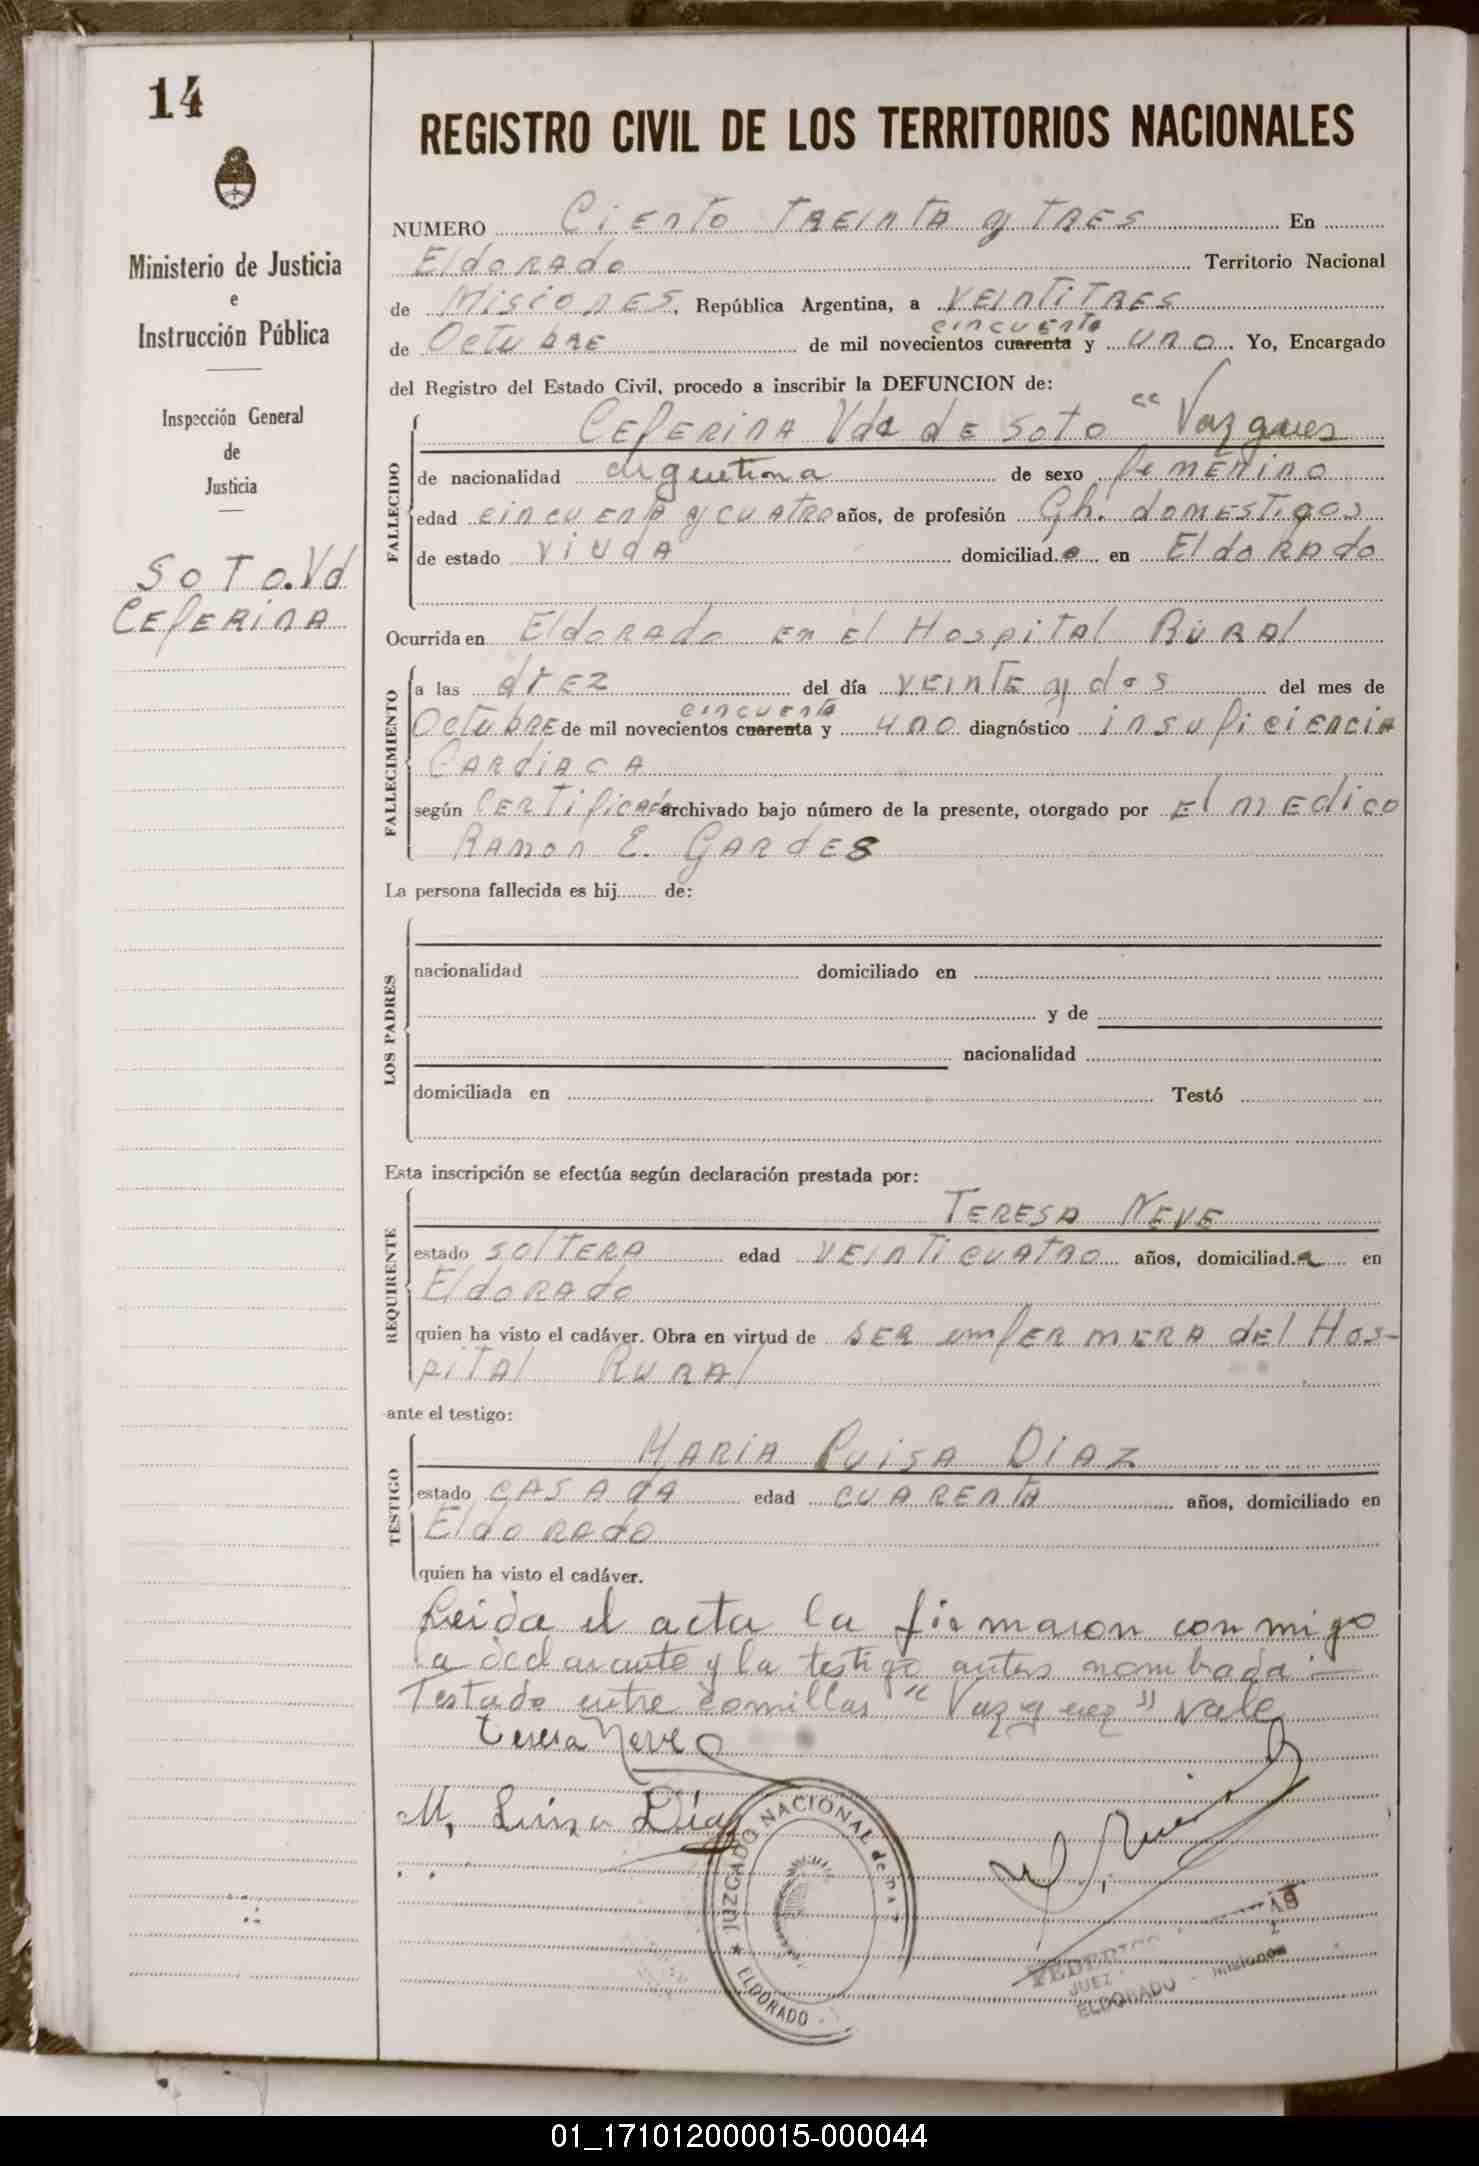 14
Ministerio de Justicia
e
Instrucción Pública
Inspección General
de
Justicia
SOTO. Vd
CEfERINA
REGISTRO CIVIL DE LOS TERRITORIOS NACIONALES
NUMERO Ciento TREINTA y TRES En
ElDORADO Territorio Nacional
de MisionES, República Argentina, a VEINTITRES
cincuenta
de OctubRE de mil novecientos cuarenta y uno. Yo, Encargado
del Registro del Estado Civil, procedo a inscribir la DEFUNCION de:
CEfERINA Vda DE SOTO “ Vazquez
FALLECIDO
de nacionalidad argentina de sexo femenino
edad cincuenta y cuatro años, de profesión Qh. domesticos
de estado viuda domiciliad.a en ElDORADO
Ocurrida en ElDORADO en El Hospital Rural
FALLECIMIENTO
a las diez del día VEINTE y dos del mes de
cincuenta
OctubRE de mil novecientos cuarenta y uno diagnóstico insuficiencia
CARDIACA
según Certificado archivado bajo número de la presente, otorgado por El medico
Ramon E. Gardes
La persona fallecida es hij........ de:
LOS PADRES
nacionalidad domiciliado en
y de
nacionalidad
domiciliada en Testó
Esta inscripción se efectúa según declaración prestada por:
REQUIRENTE
TERESA NEVE
estado SOLTERA edad VEINTICUATRO años, domiciliad.a en
ElDORADO
quien ha visto el cadáver. Obra en virtud de SER emfermera del Hos-
pital Rural
ante el testigo:
TESTIGO
MARIA LUISA DIAZ
estado CASADA edad CUARENTA años, domiciliado en
ElDORADO
quien ha visto el cadáver.
Leida el acta la firmaron conmigo
la declarante y la testigo antes nombada.—
Testado entre comillas “Vazquez” vale
Teresa Neve
M, Luisa Díaz
JUZGADO NACIONAL de PAZ
★ ELDORADO -
FEDERICO
JUEZ
ELDORADO - Misiones
01_171012000015-000044